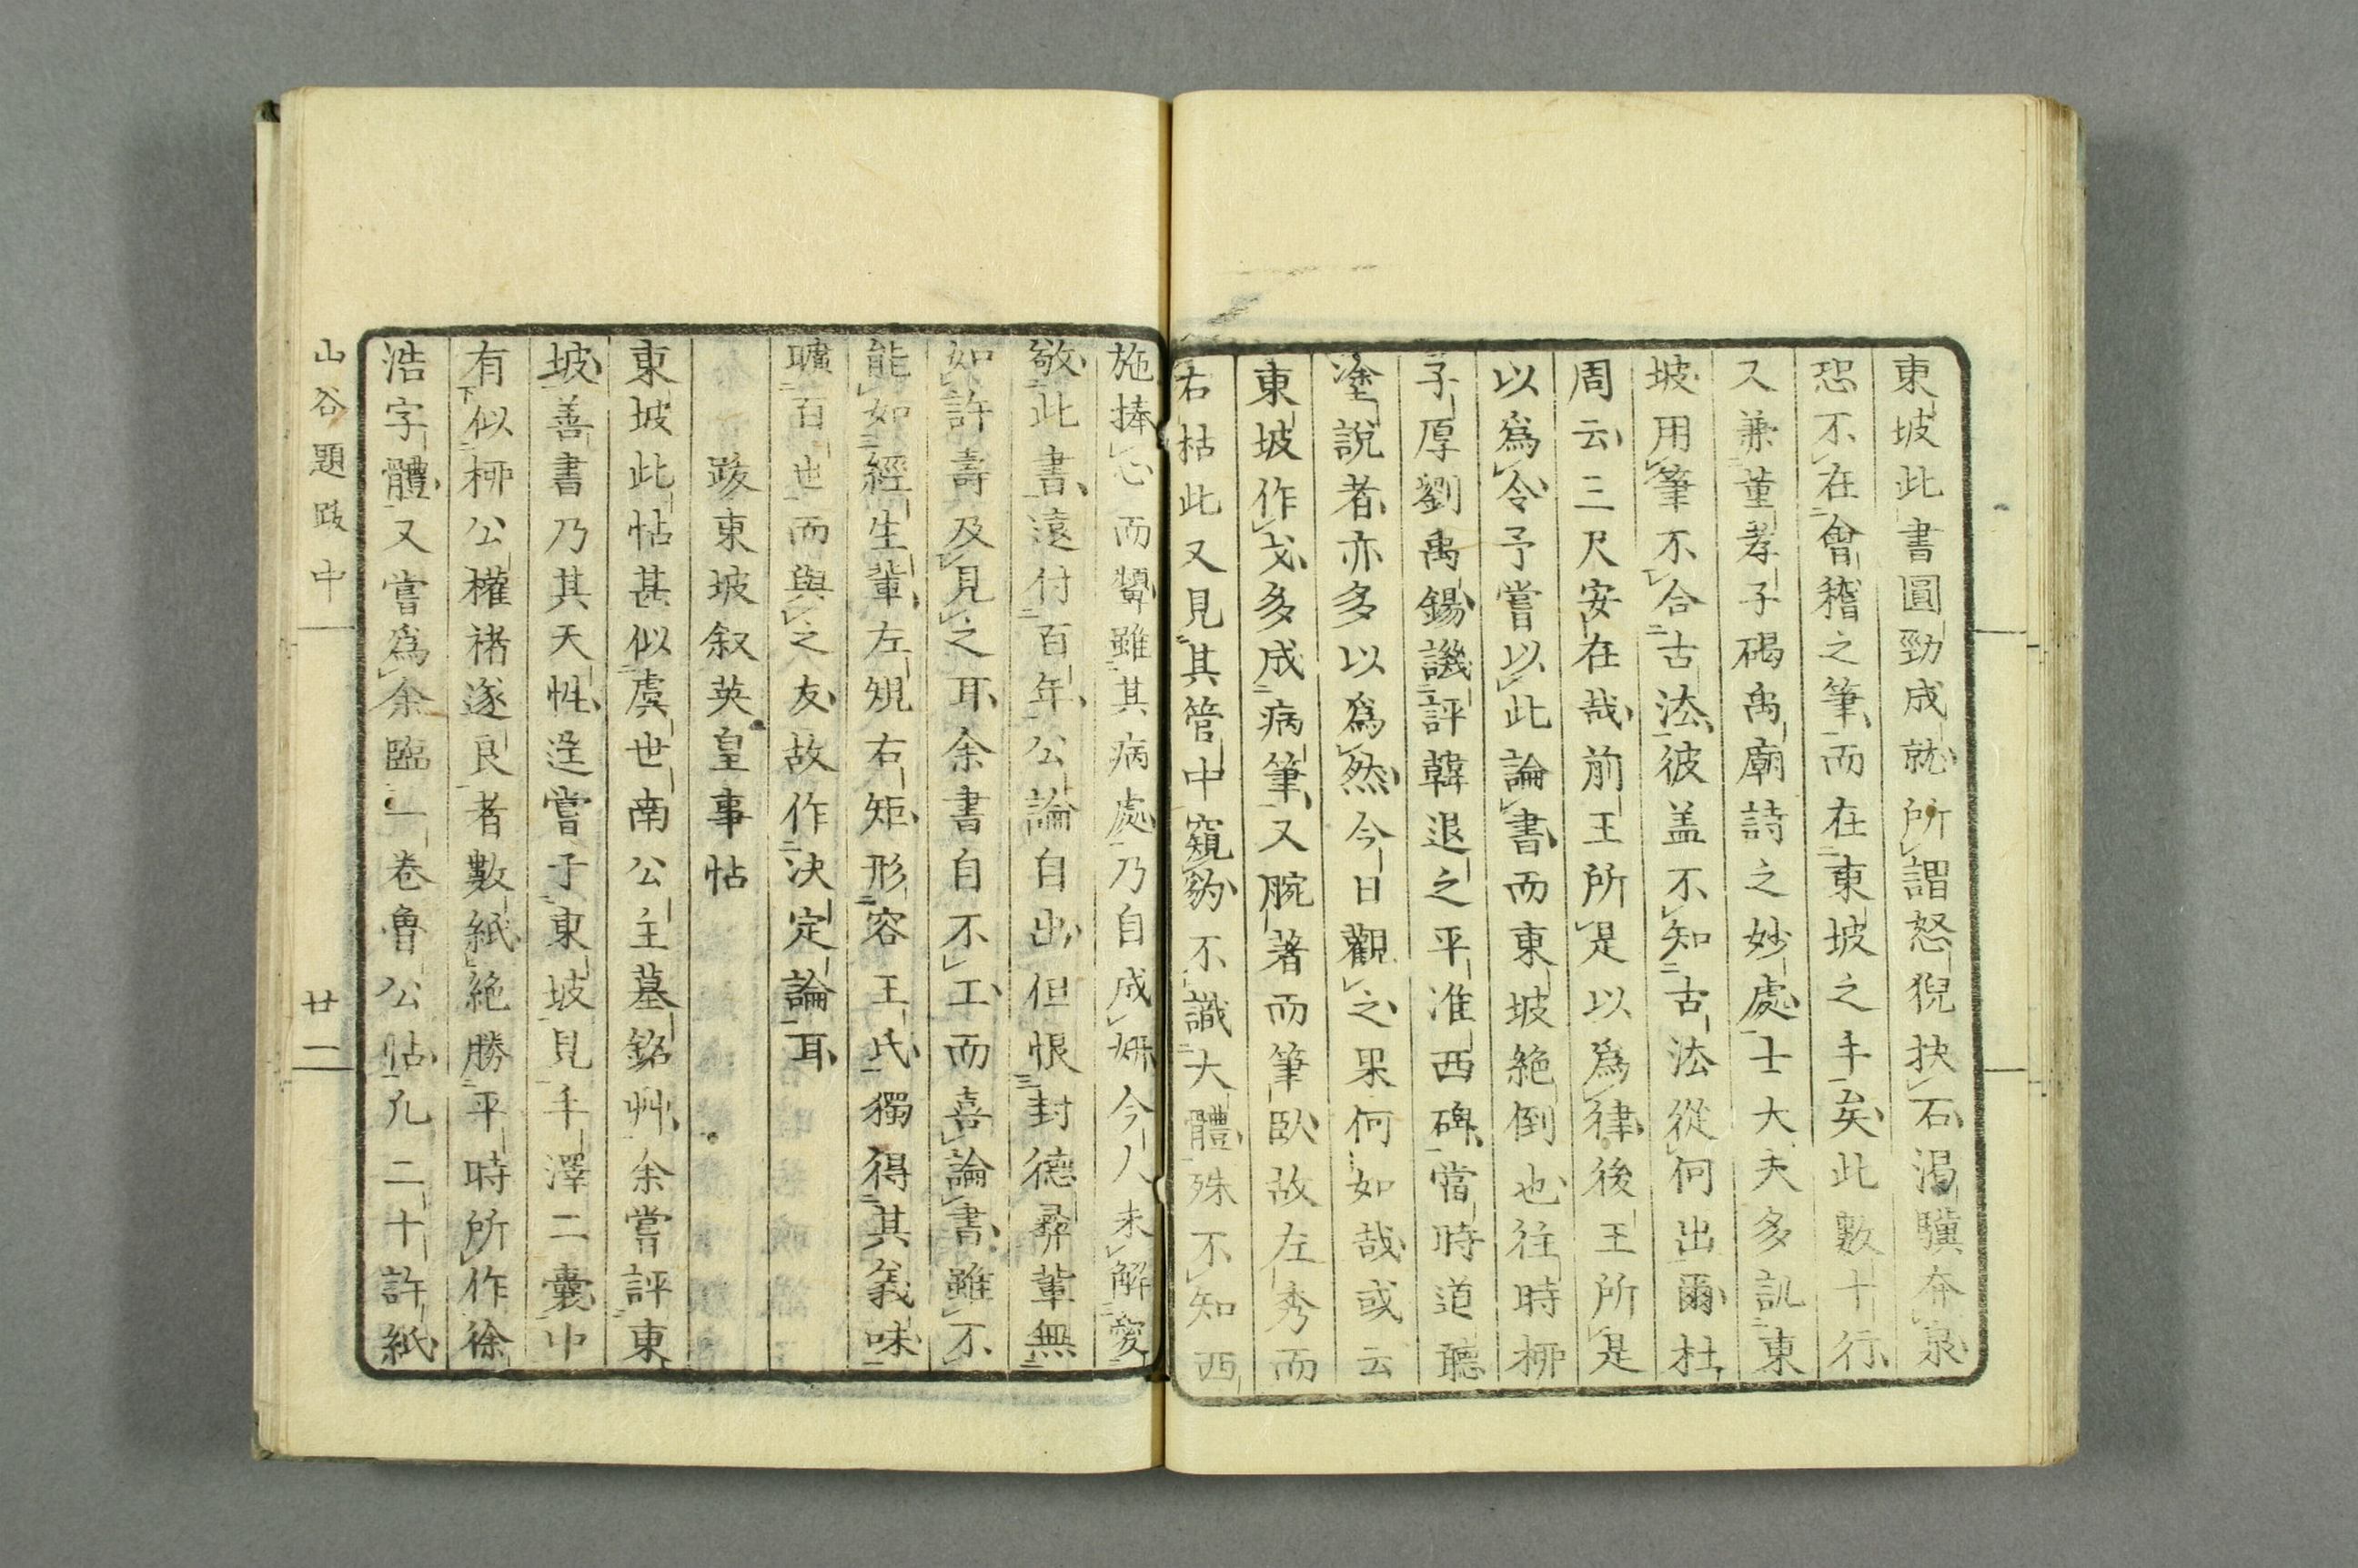 東坡此書圓勁成就所謂怒猊抉石渇驥奔泉
恐不在會稽之筆而在東坡之手矣此數十行
又兼董孝子碣禹廟詩之妙處士大夫多訕東
坡用筆不合古法彼盖不知古法從何出爾杜
周云三尺安在哉前王所是以爲律後王所是
以爲令予嘗以此論書而東坡絶倒也往時柳
子厚劉禹錫譏評韓退之平淮西碑當時道聽
塗說者亦多以爲然今日觀之果何如哉或云
東坡作戈多成病筆又腕著而筆臥故左秀而
右枯此又見其管中窺豹不識大體殊不知西
施捧心而顰雖其病處乃自成妍今人未解愛
敬此書遠付百年公論自出但恨封德彛輩無
如許壽及見之耳余書自不工而喜論書雖不
能如經生輩左規右矩形容王氏獨得其義味
曠百世而與之友故作决定論耳
跋東坡叙英皇事帖
東坡此帖甚似虞世南公主墓銘艸余嘗評東
坡善書乃其天性逞嘗于東坡見手澤二囊中
有似柳公權褚遂良者數紙絶勝平時所作徐
浩字體又嘗爲余臨一卷魯公帖凡二十許紙
山谷題跋中
廿二